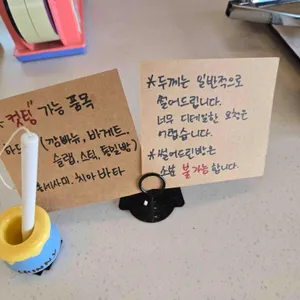 *컷팅 가능 품목
(깜빠뉴, 바게트,
슬랩, 스틱, 통밀빵)
치아바타
*두께는 일반적으로
썰어드립니다.
너무 디테일한 요청은
어렵습니다.
*썰어드린빵은
불가능합니다.